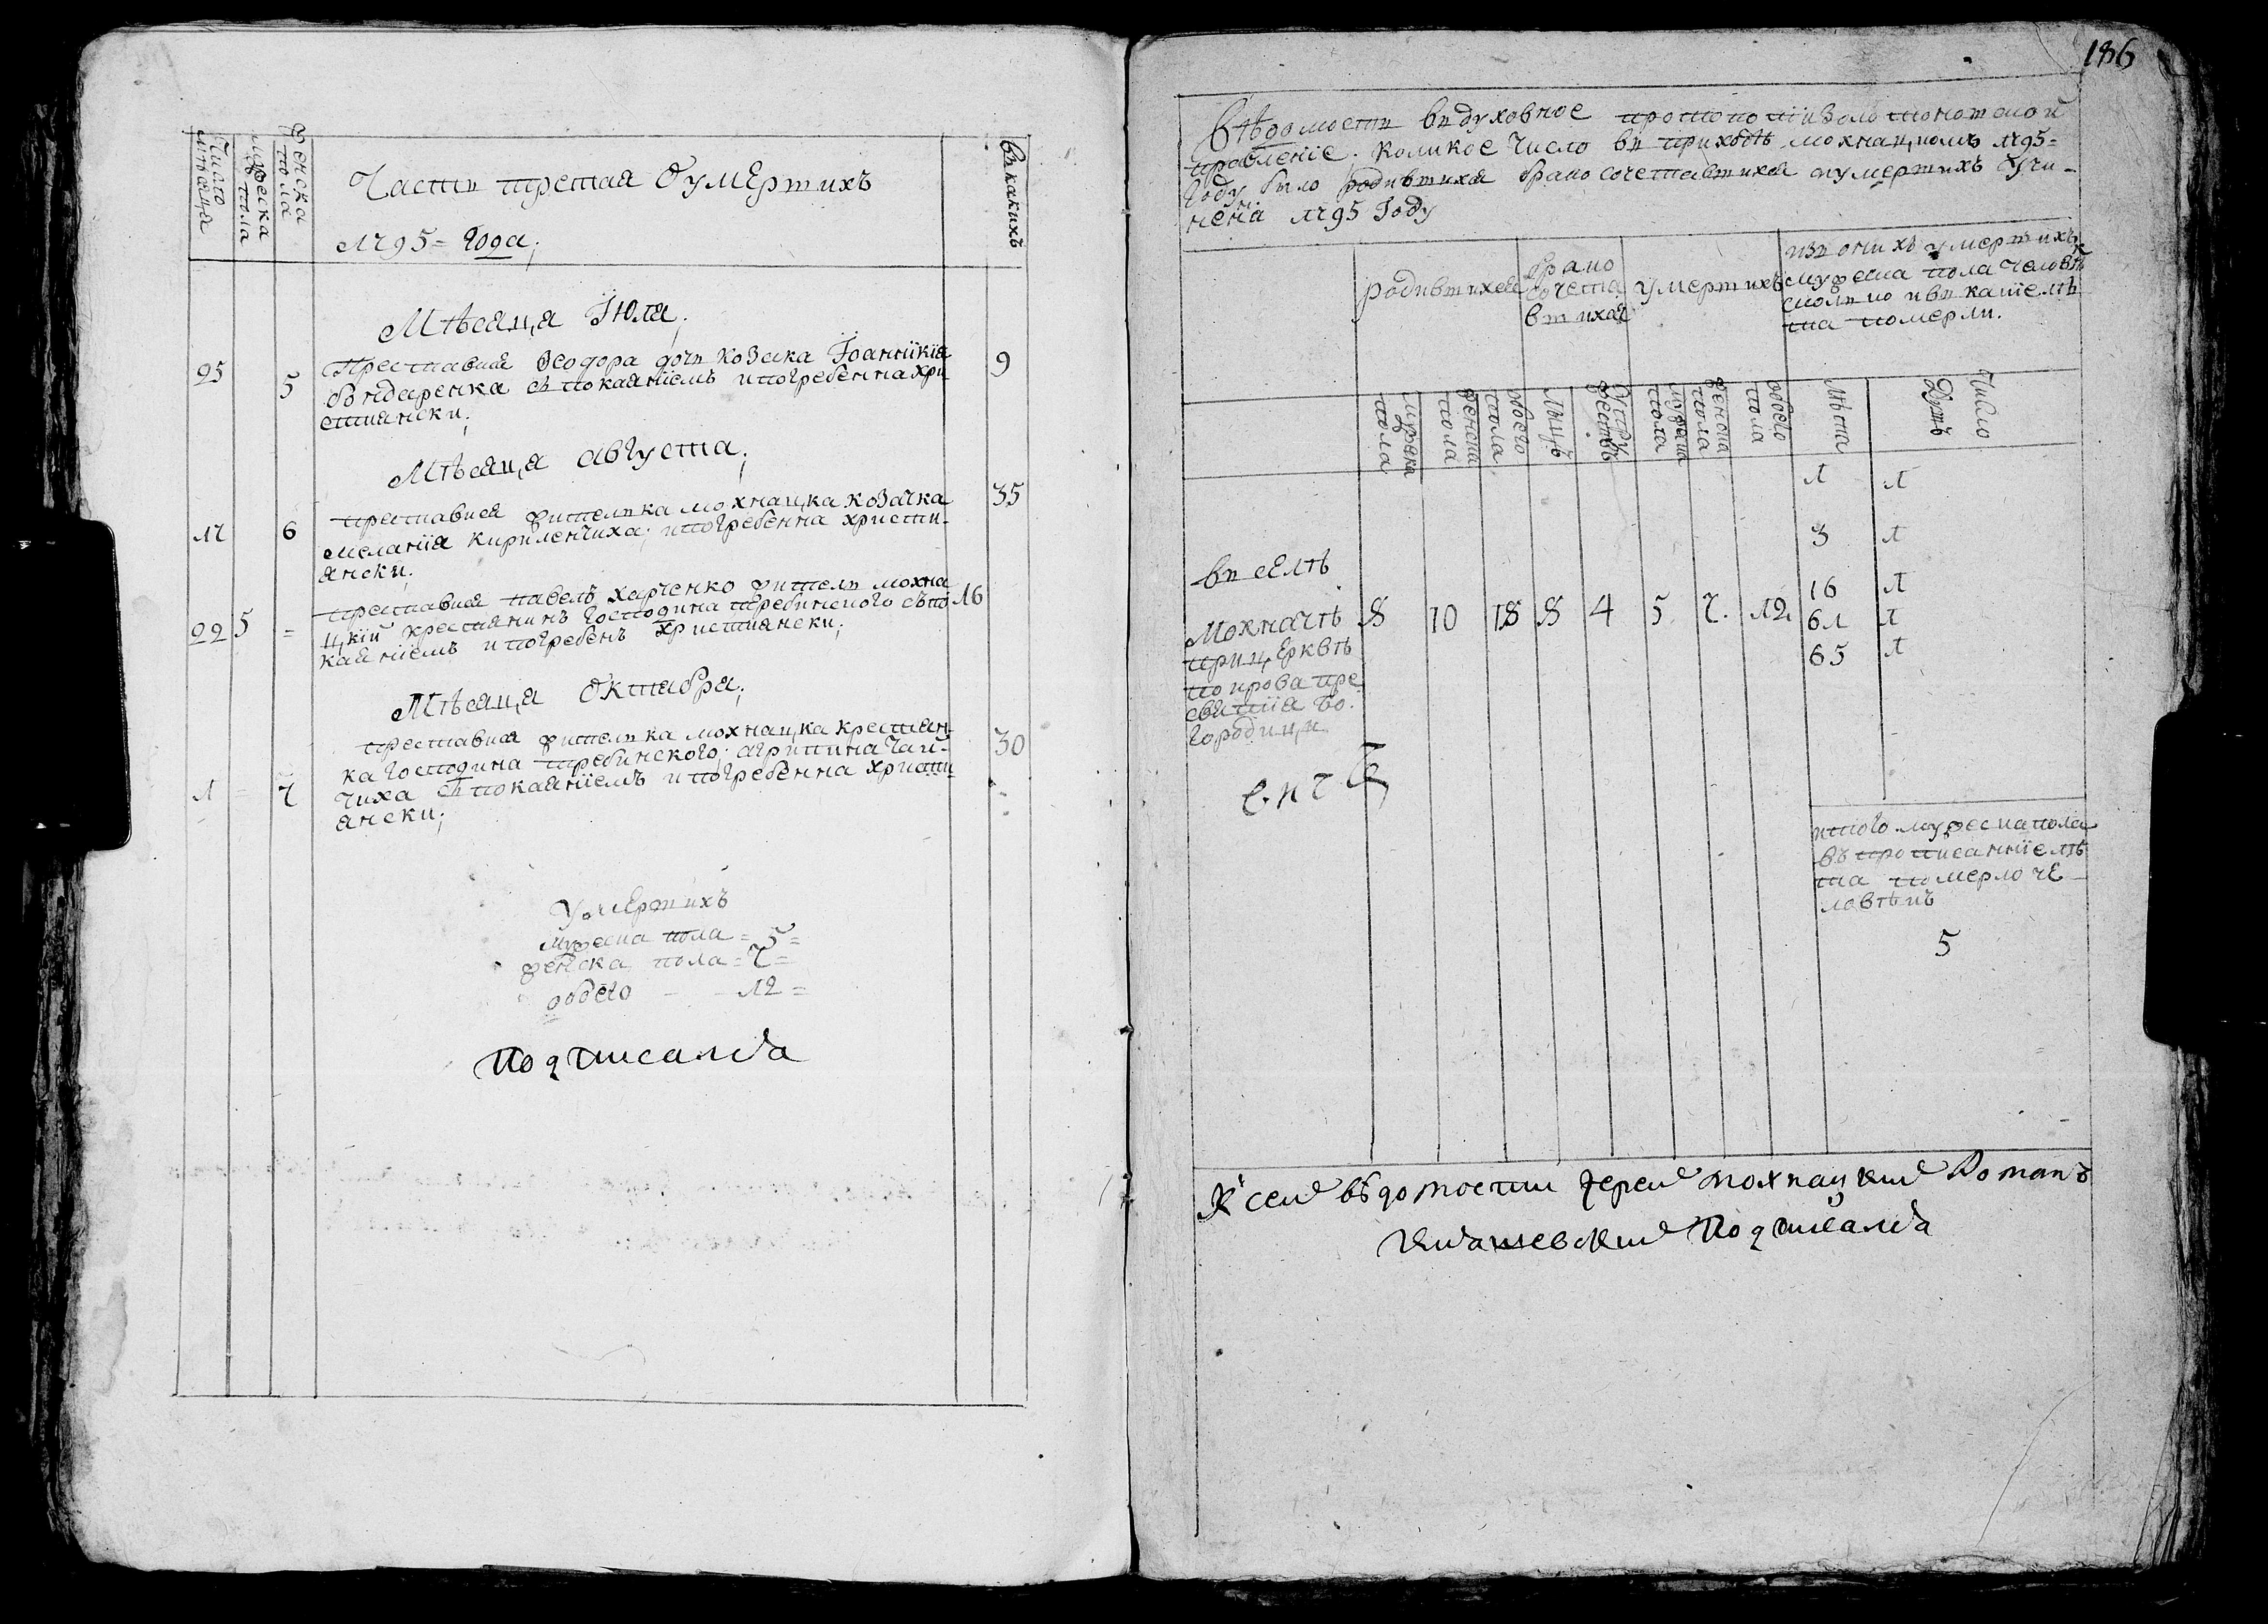 Число мѣсяца
мужеска пола
женска пола
Часть третая оумершихъ
1795= года;
въ какихъ
Мѣсяца Іюля;
25 5 Преставися Ѳеодора дочь козака Іоанникія 9
бондаренка съ покаяніемъ и погребенна хри
стиянски;
Мѣсяца августа;
17 6 преставися жителька мохнацка козачка 35
меланія кириленчиха; и погребенна христи-
янски;
22 5 = преставися павелъ харченко житель мохна 16
цкій крестянинъ господина требинского съ по
каяніемъ и погребенъ християнски;
Мѣсяца Октября;
преставися жителька мохнацка крестян 30
ка господина требинского; агрипина чай-
1 = 7 чиха съ покаяніемъ и погребенна христи
янски;
Умершихъ
мужеска пола = 5 =
женска пола = 7 =
обоего - - 12 =
Подписался
186
Вѣдомость въ духовное протопопіи золотоношской
правленіе. коликое число въ приходѣ мохнацкомъ 1795=
году было родившихся брако сочетавшихся и умершихъ учи-
нена 1795 Году
родившихся
брако сочета вшихся
умершихъ
изъ онихъ умершихъ
мужеска пола человѣкъ
сколько и въ какіе лѣ
та померли.
мужеска пола
женска пола
обоего пола
лицъ
супружествъ
мужеска пола
женска пола
обоего пола
Лѣта
Число Душъ
1 1
3 1
16 1
61 1
65 1
въ селѣ
Мохначѣ 8 10 18 8 4 5 7. 12
при церквѣ
покрова пре
святія бо.
городици
итого мужеска пола
въ прописанніе лѣ
та померло че
ловѣкъ
5
К сей вѣдомости іерей мохнацкий Романъ
Кияшевский Подписался